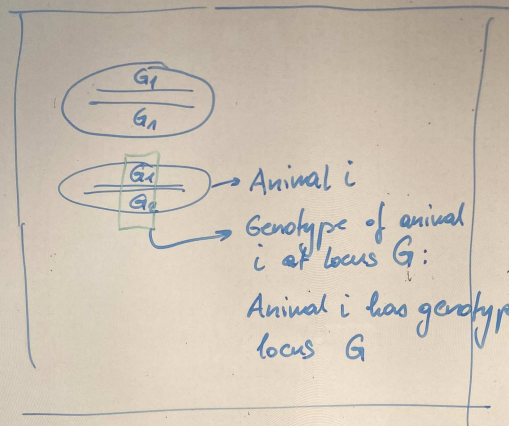 G₁
G₁
G₁
G₂
Animal i
Genotype of animal
i at locus G:
Animal i has genotyp
locus G